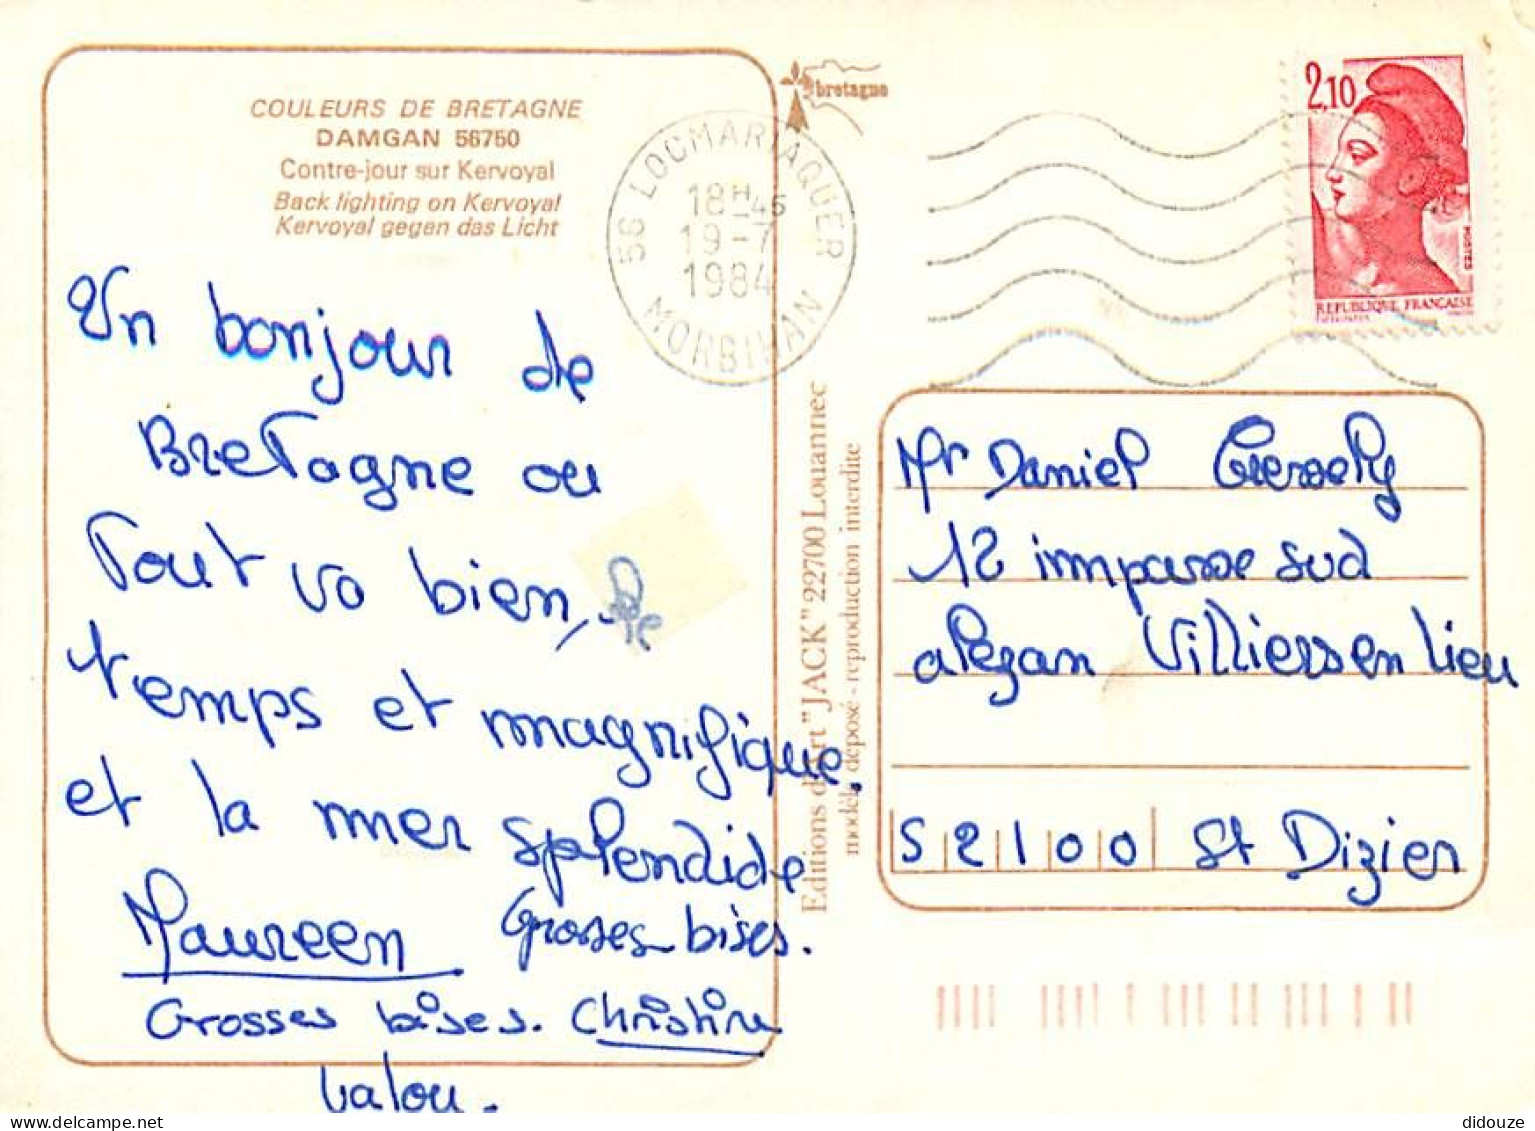 COULEURS DE BRETAGNE
DAMGAN 56750
Contre-jour sur Kervoyal
Back lighting on Kervoyal
Kervoyal gegen das Licht
Un bonjour de
Bretagne ou
Tout va bien, le
temps et magnifique,
et la mer splendide
Maureen Grosses bises.
Grosses bises. Christine
Valou.
56 LOCMARIAQUER
18H45
19-7
1984
MORBIHAN
bretagne
2,10
POSTES
REPUBLIQUE FRANÇAISE
Editions d'Art "JACK" 22700 Louannec
modèle déposé - reproduction interdite
Mr Daniel
12 impasse sud
alezan Villiers en lieu
52100 St Dizier
didouze